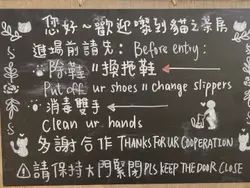 您好~歡迎嚟到貓之茶房
進場前請先：Before entry:
·除鞋//換拖鞋
Put off ur shoes // change slippers
·消毒雙手
Clean ur hands
多謝合作 THANKS FOR UR COOPERATION
請保持大門緊閉 PLS KEEP THE DOOR CLOSE